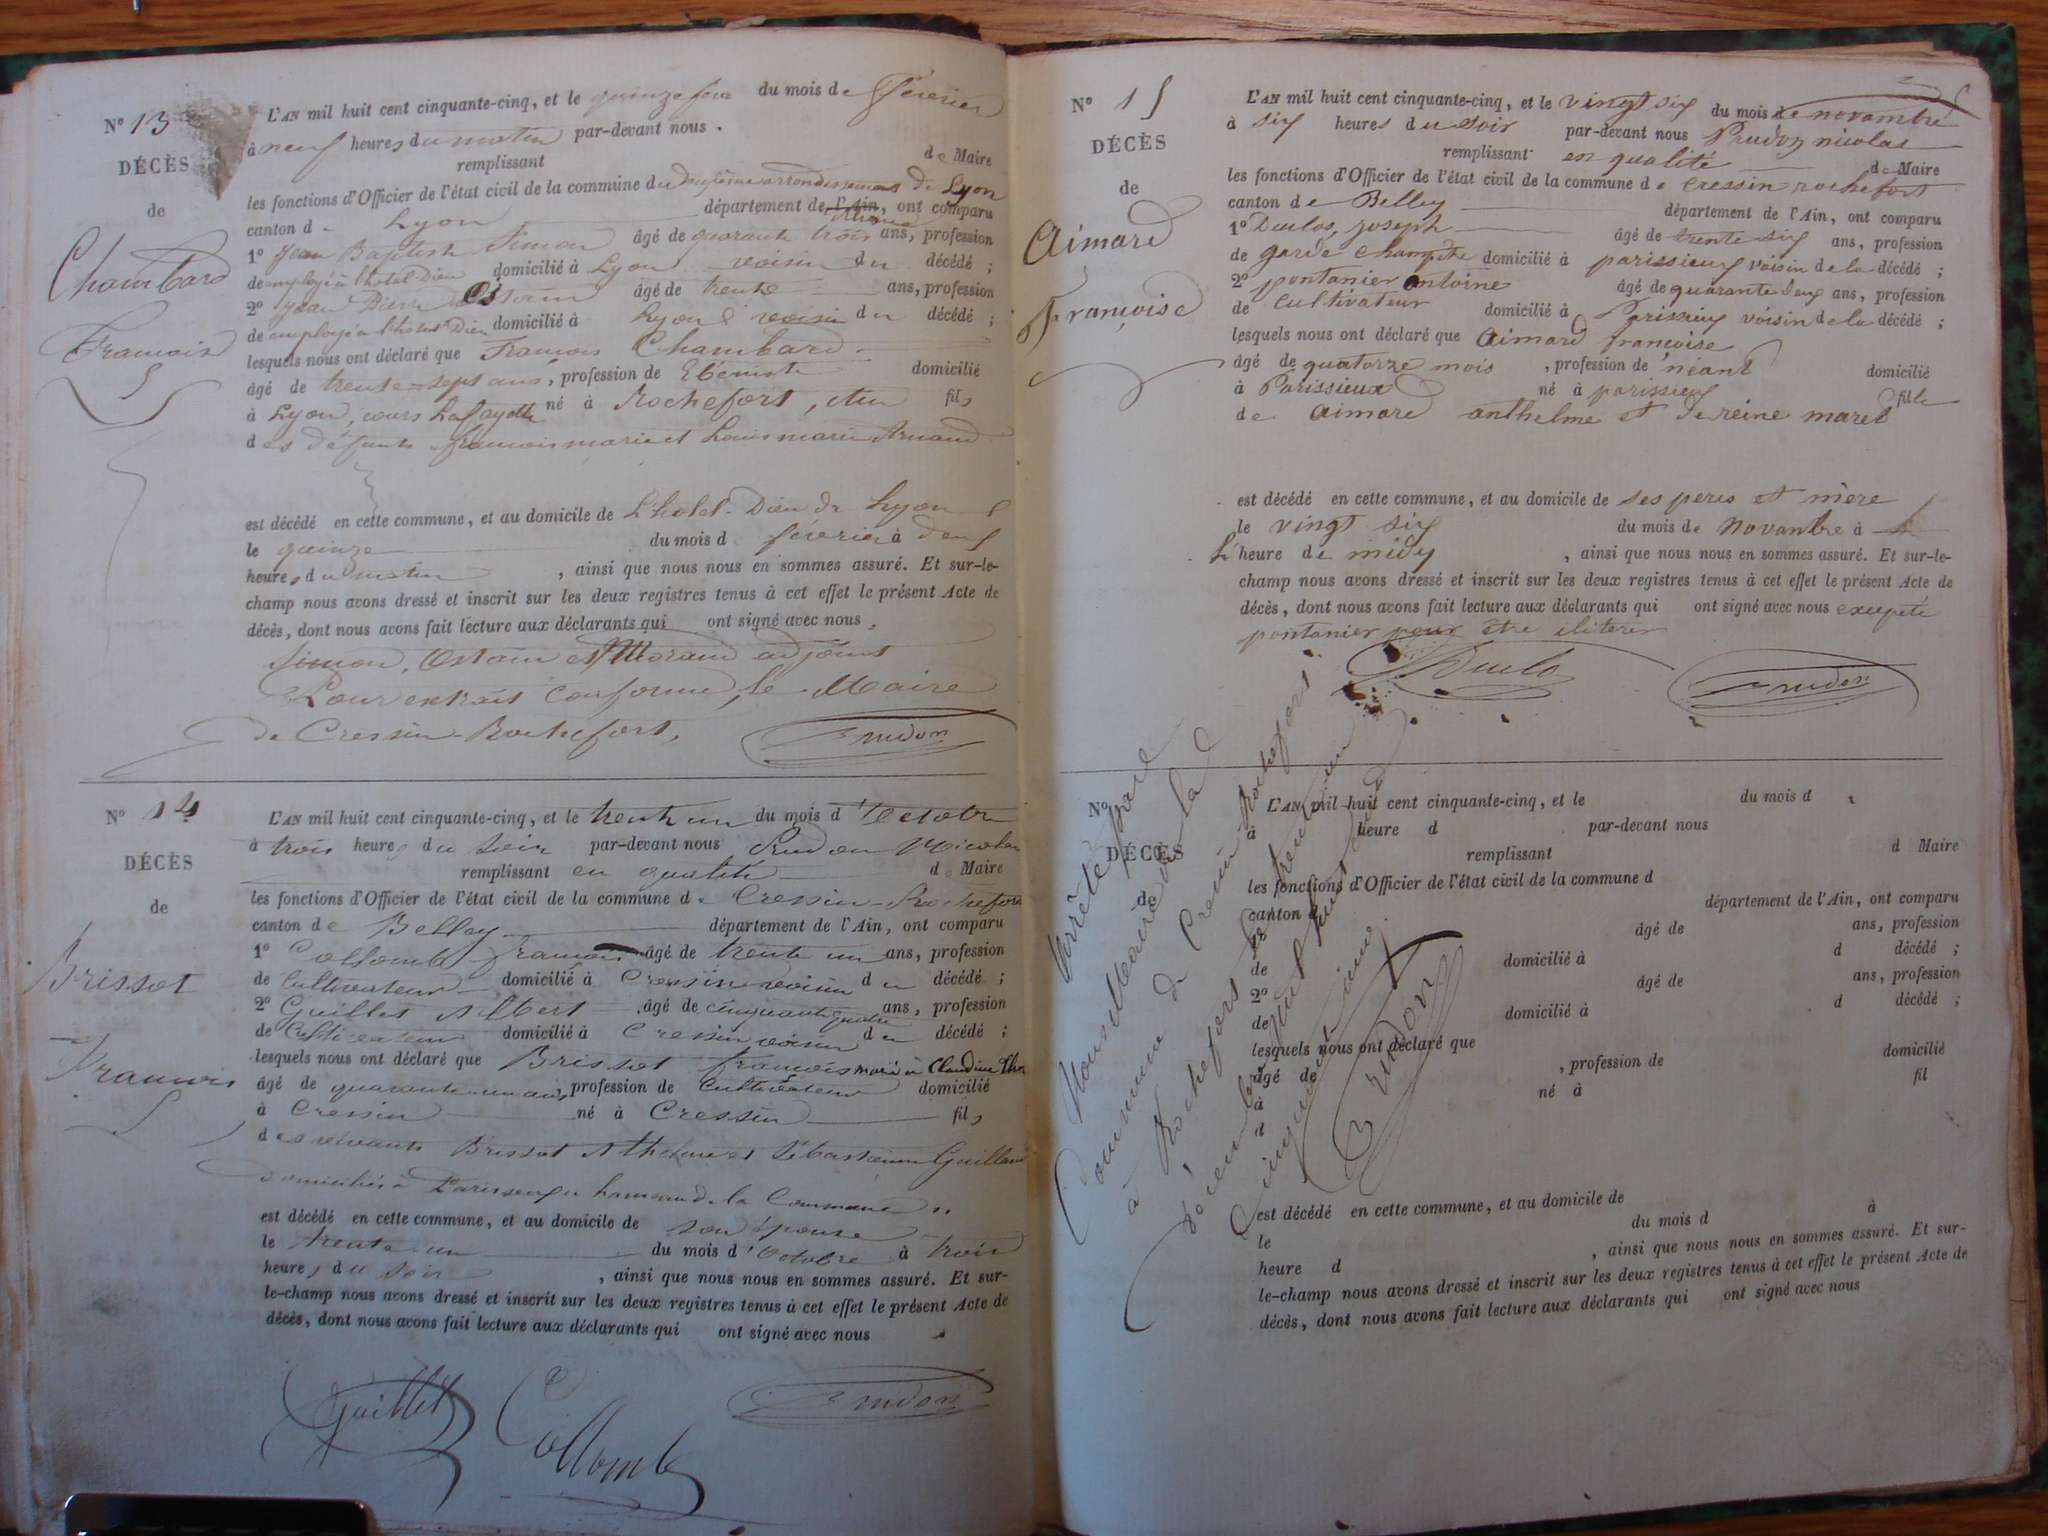 N° 13
DÉCÈS
de
Chambard
François
L'AN mil huit cent cinquante-cinq, et le quinze du mois de Février
à neuf heures du matin par-devant nous
remplissant de Maire
les fonctions d'Officier de l'état civil de la commune du deuxième arrondissement de Lyon
canton d Lyon département de l'Ain, ont comparu
Rhône
1° Jean Baptiste Simon âgé de quarante trois ans, profession
de employé à l'hotel Dieu domicilié à Lyon voisin du décédé ;
2° Jean Pierre Ostain âgé de trente ans, profession
de employé à l'hotel Dieu domicilié à Lyon voisin du décédé ;
lesquels nous ont déclaré que François Chambard
âgé de trente-sept ans, profession de Ebeniste domicilié
à Lyon, cours Lafayette né à Rochefort, Ain fils
des défunts françois marie et Louis marie Arnaud
est décédé en cette commune, et au domicile de L'hotel-Dieu de Lyon
le quinze du mois de février à deux
heures du matin, ainsi que nous nous en sommes assuré. Et sur-le-
champ nous avons dressé et inscrit sur les deux registres tenus à cet effet le présent Acte de
décès, dont nous avons fait lecture aux déclarants qui ont signé avec nous.
Simon, Ostain et Morand adjoint
Pour extrait conforme, le Maire
de Cressin-Rochefort,
Prudon
N° 14
DÉCÈS
de
Brissot
François
L'AN mil huit cent cinquante-cinq, et le trente un du mois d'Octobre
à trois heures du soir par-devant nous Prudon Nicolas
remplissant en qualité de Maire
les fonctions d'Officier de l'état civil de la commune de Cressin-Rochefort
canton de Belley département de l'Ain, ont comparu
1° Collomb françois âgé de trente un ans, profession
de Cultivateur domicilié à Cressin voisin du décédé ;
2° Guillet Albert âgé de cinquante quatre ans, profession
de Cultivateur domicilié à Cressin voisin du décédé ;
lesquels nous ont déclaré que Brissot françois marié à Claudine
âgé de quarante-un ans, profession de Cultivateur domicilié
à Cressin né à Cressin fils
des vivants Brissot Athelme et Sébastienne Guilland
domiciliés à Parissieux hameau de la Commune
est décédé en cette commune, et au domicile de son épouse
le trente-un du mois d'Octobre à trois
heures du soir, ainsi que nous nous en sommes assuré. Et sur-
le-champ nous avons dressé et inscrit sur les deux registres tenus à cet effet le présent Acte de
décès, dont nous avons fait lecture aux déclarants qui ont signé avec nous
Guillet Collomb Prudon
N° 15
DÉCÈS
de
Aimard
Françoise
L'AN mil huit cent cinquante-cinq, et le vingt six du mois de novambre
à six heures du soir par-devant nous Prudon nicolas
remplissant en qualité de Maire
les fonctions d'Officier de l'état civil de la commune de cressin rochefort
canton de Belley département de l'Ain, ont comparu
1° Duclos, joseph âgé de trente six ans, profession
de garde champetre domicilié à parissieux voisin de la décédé ;
2° pontanier antoine âgé de quarante deux ans, profession
de cultivateur domicilié à Parissieux voisin de la décédé ;
lesquels nous ont déclaré que aimard françoise
âgé de quatorze mois, profession de néant domicilié
à Parissieux né à parissieux fille
de aimard anthelme et de reine maret
est décédé en cette commune, et au domicile de ses peres et mère
le vingt six du mois de novanbre à
L'heure de midy, ainsi que nous nous en sommes assuré. Et sur-le-
champ nous avons dressé et inscrit sur les deux registres tenus à cet effet le présent Acte de
décès, dont nous avons fait lecture aux déclarants qui ont signé avec nous excepté
pontanier pour être iliterer
Duclo Prudon
N°
DÉCÈS
de
L'AN mil huit cent cinquante-cinq, et le du mois d
à heure d par-devant nous
remplissant d Maire
les fonctions d'Officier de l'état civil de la commune d
canton d département de l'Ain, ont comparu
1° âgé de ans, profession
de domicilié à d décédé ;
2° âgé de ans, profession
de domicilié à d décédé ;
lesquels nous ont déclaré que
âgé de , profession de domicilié
à né à fil
d
est décédé en cette commune, et au domicile de
le du mois d à
heure d , ainsi que nous nous en sommes assuré. Et sur-
le-champ nous avons dressé et inscrit sur les deux registres tenus à cet effet le présent Acte de
décès, dont nous avons fait lecture aux déclarants qui ont signé avec nous
Arrêté par
Nous Maire de la
Commune de Cressin Rochefort
à Rochefort le trente un
décembre mil huit cent
Cinquante cinq
Prudon